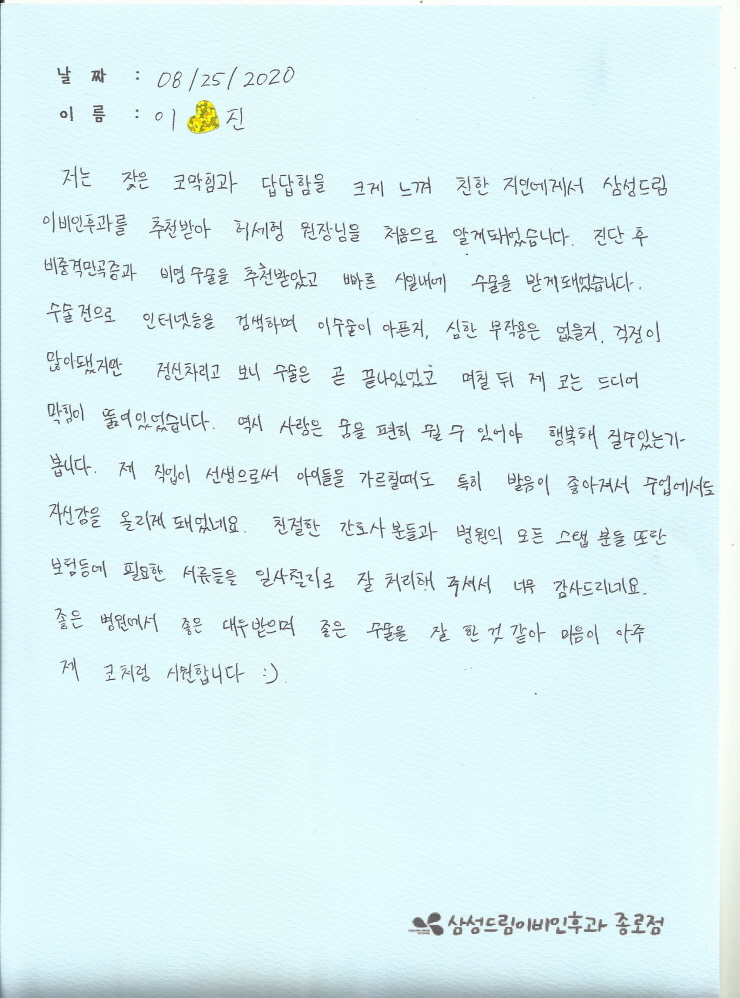 날 짜 : 08/25/2020
이 름 : 이 진
저는 잦은 코막힘과 답답함을 크게 느껴 친한 지인에게서 삼성드림
이비인후과를 추천받아 허세형 원장님을 처음으로 알게돼었습니다. 진단 후
비중격만곡증과 비염 수술을 추천받았고 빠른 시일내에 수술을 받게돼었습니다.
수술 전으로 인터넷등을 검색하며 이수술이 아픈지, 심한 부작용은 없을지, 걱정이
많아됐지만 정신차리고 보니 수술은 곧 끝나있었고 며칠 뒤 제 코는 드디어
막힘이 뚫여있었습니다. 역시 사람은 숨을 편히 쉴 수 있어야 행복해 질수있는가
봅니다. 제 직업이 선생으로써 아이들을 가르칠때도 특히 발음이 좋아져서 수업에서도
자신감을 올리게 돼었네요. 친절한 간호사 분들과 병원의 모든 스탭 분들 또한
보험등에 필요한 서류들을 일사천리로 잘 처리해 주셔서 너무 감사드리네요.
좋은 병원에서 좋은 대우받으며 좋은 수술을 잘 한 것 같아 마음이 아주
제 코처럼 시원합니다 :)
삼성드림이비인후과 종로점